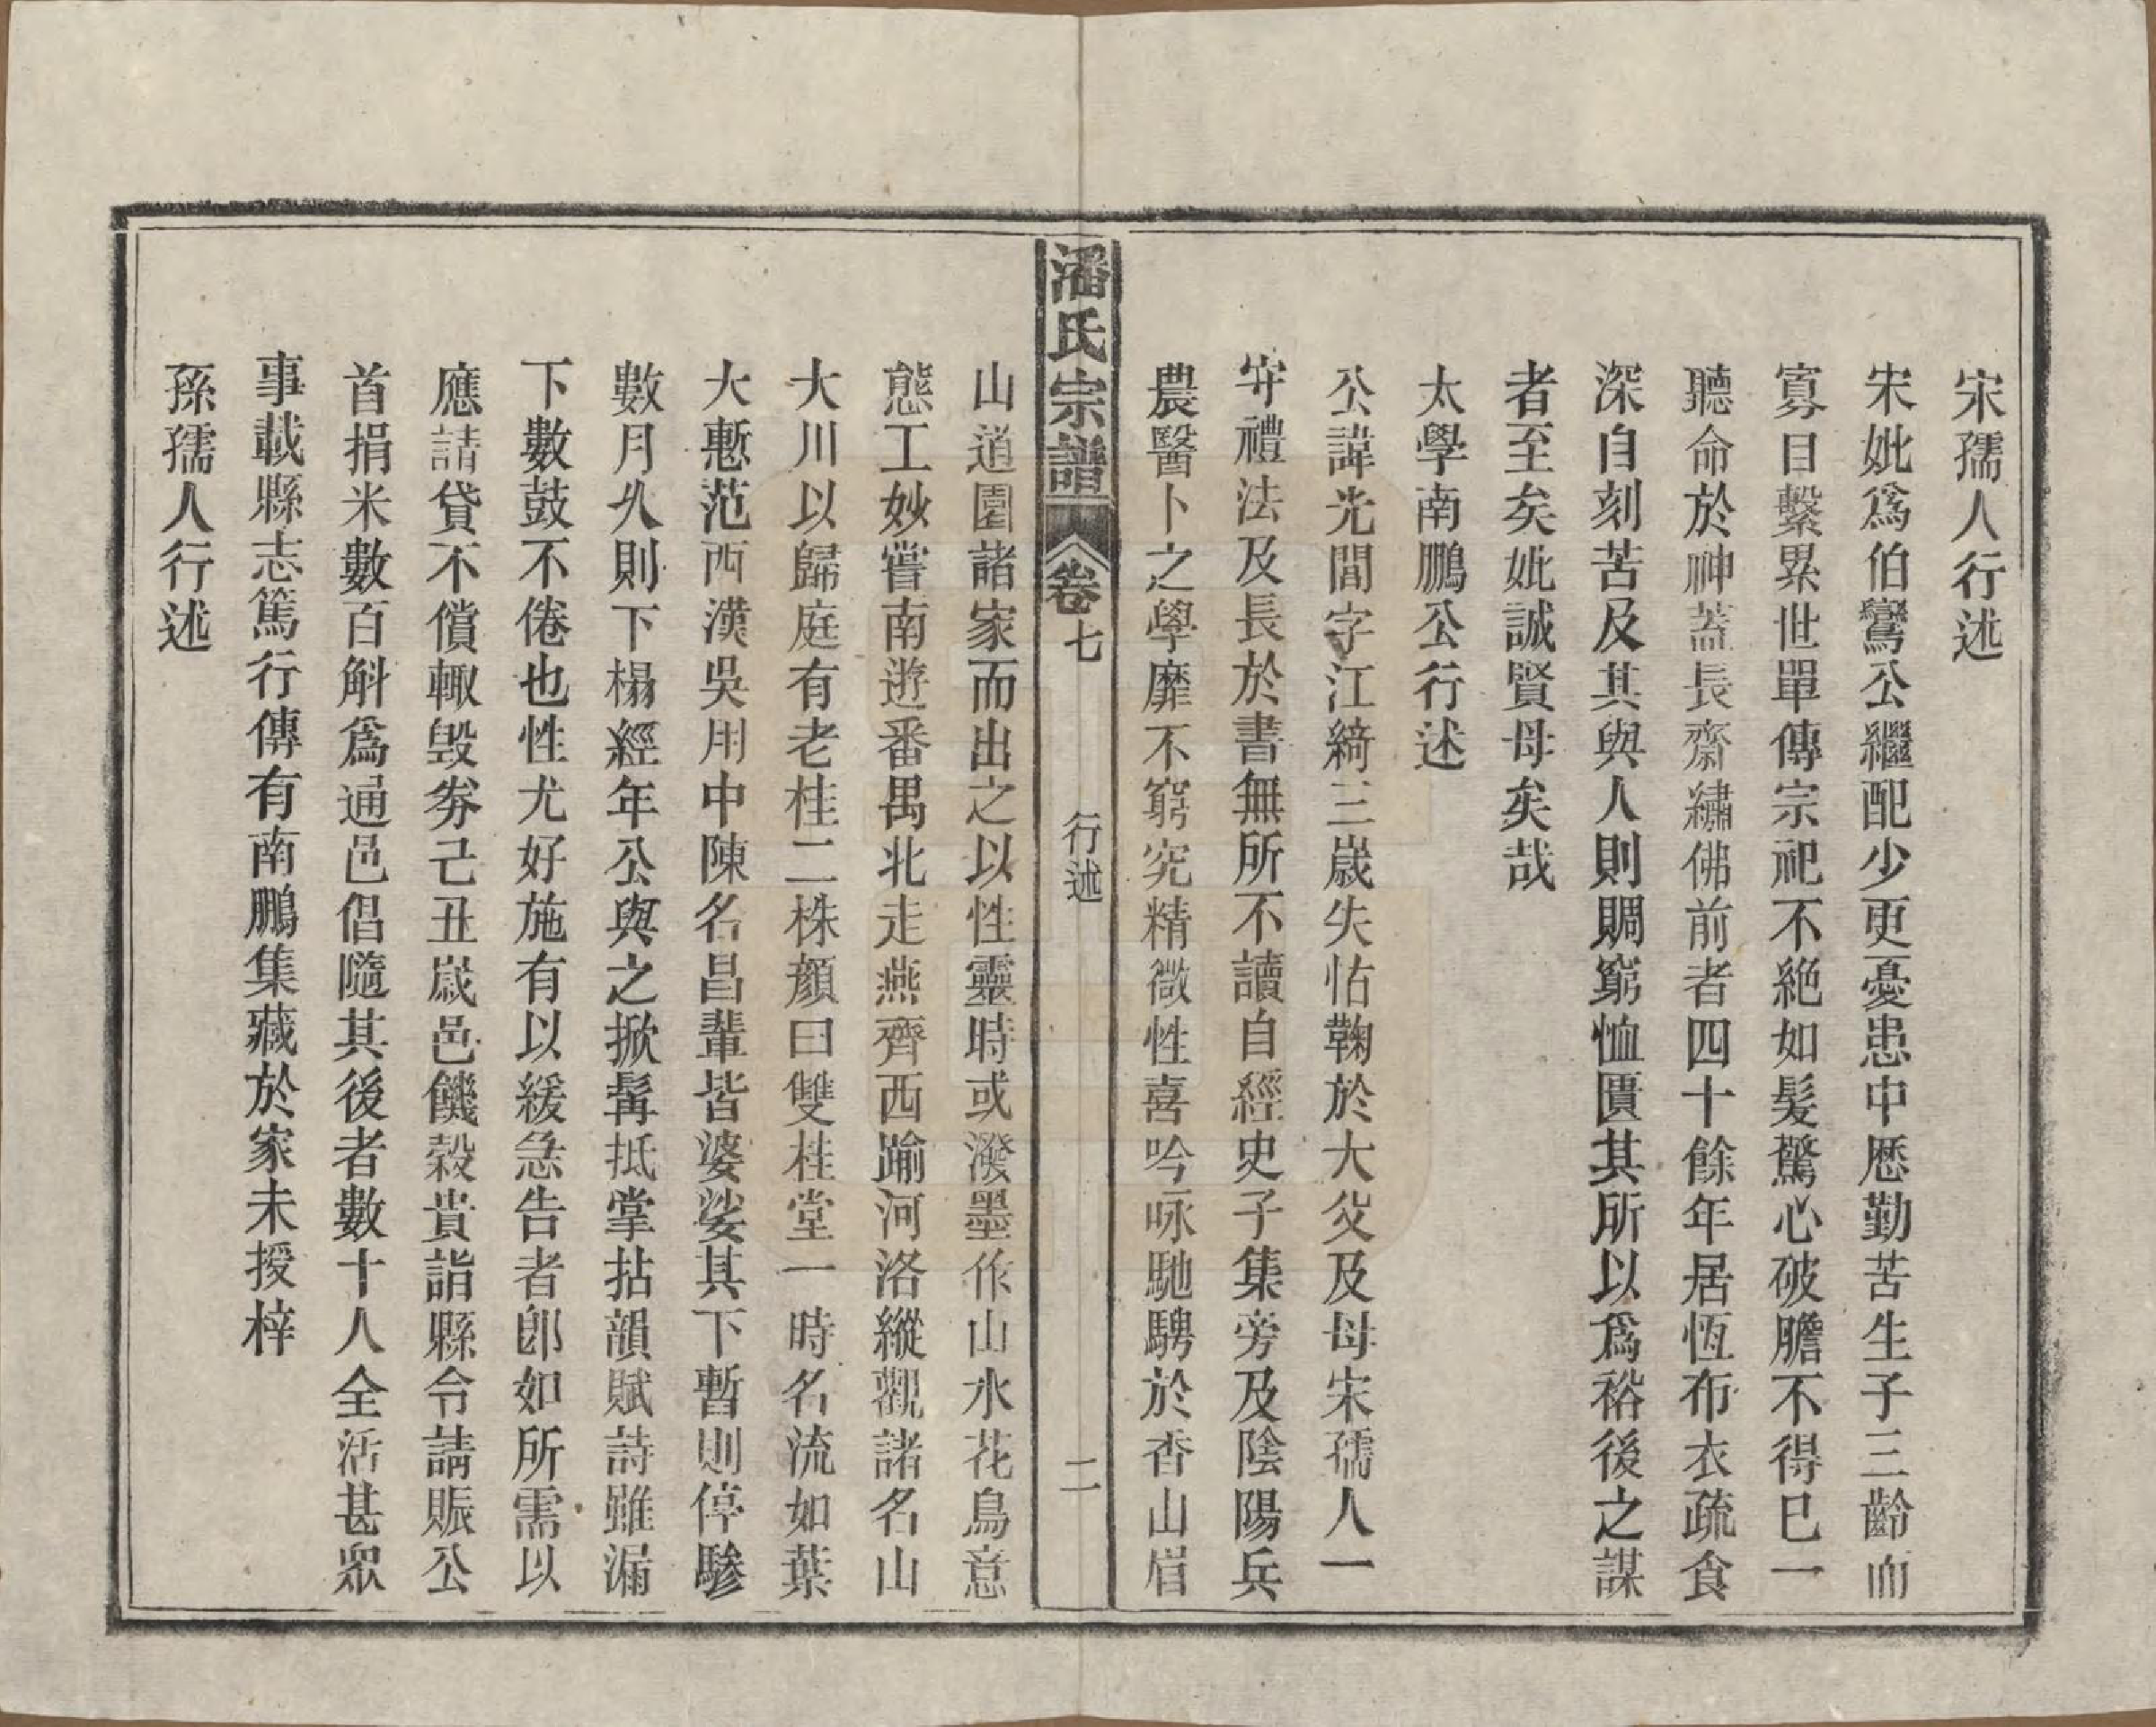 宋孺人行述
宋妣爲伯鸞公繼配少更憂患中歷勤苦生子三齡而
寡日繫累世單傳宗祀不絶如髮驚心破膽不得已一
聽命於神蓋長齋繡佛前者四十餘年居恆布衣疏食
深自刻苦及其與人則賙窮恤匱其所以爲裕後之謀
者至矣妣誠賢母矣哉
太學南鵬公行述
公諱光閶字江綺三嵗失怙鞠於大父及母宋孺人一
守禮法及長於書無所不讀自經史子集旁及陰陽兵
農醫卜之學靡不窮究精微性喜吟咏馳騁於香山眉
潘氏宗譜 卷七 行述 二
山道園諸家而出之以性靈時或潑墨作山水花鳥意
態工妙嘗南遊番禺北走燕齊西踰河洛縱觀諸名山
大川以歸庭有老桂二株顏曰雙桂堂一時名流如葉
大慙范西漢吳用中陳名昌輩皆婆娑其下暫則停驂
數月久則下榻經年公與之掀髯抵掌拈韻賦詩雖漏
下數鼓不倦也性尤好施有以緩急告者卽如所需以
應請貸不償輙毁券己丑嵗邑饑穀貴詣縣令請賑公
首捐米數百斛爲通邑倡隨其後者數十人全活甚眾
事載縣志篤行傳有南鵬集藏於家未授梓
孫孺人行述